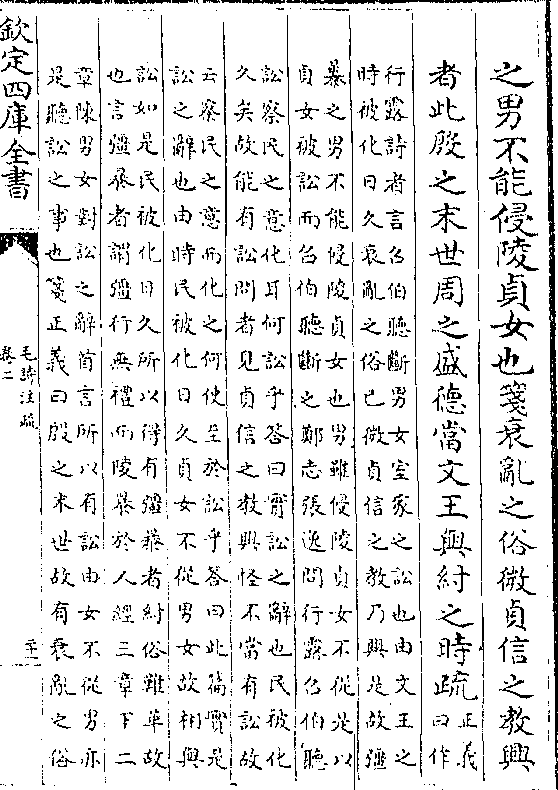 之男不能侵陵貞女也箋衰亂之俗微貞信之教興
者此殷之末世周之盛德當文王與紂之時疏正義
曰作
行露詩者言召伯聽斷男女室家之訟也由文王之
時被化日久衰亂之俗已微貞信之教乃興是故彊
暴之男不能侵陵貞女也男雖侵陵貞女不從是以
貞女被訟而召伯聽斷之鄭志張逸問行露召伯聽
訟察民之意化耳何訟乎答曰實訟之辭也民被化
久矣故能有訟問者見貞信之教興怪不當有訟故
云察民之意而化之何使至於訟乎答曰此篇實是
訟之辭也由時民被化日久貞女不從男女故相與
訟如是民被化日久所以得有彊暴者紂俗難革故
也言彊暴者謂彊行無禮而陵暴於人經三章下二
章陳男女對訟之辭首言所以有訟由女不從男亦
是聽訟之事也箋正義曰殷之末世故有衰亂之俗
欽定四庫全書
毛詩注疏
卷二